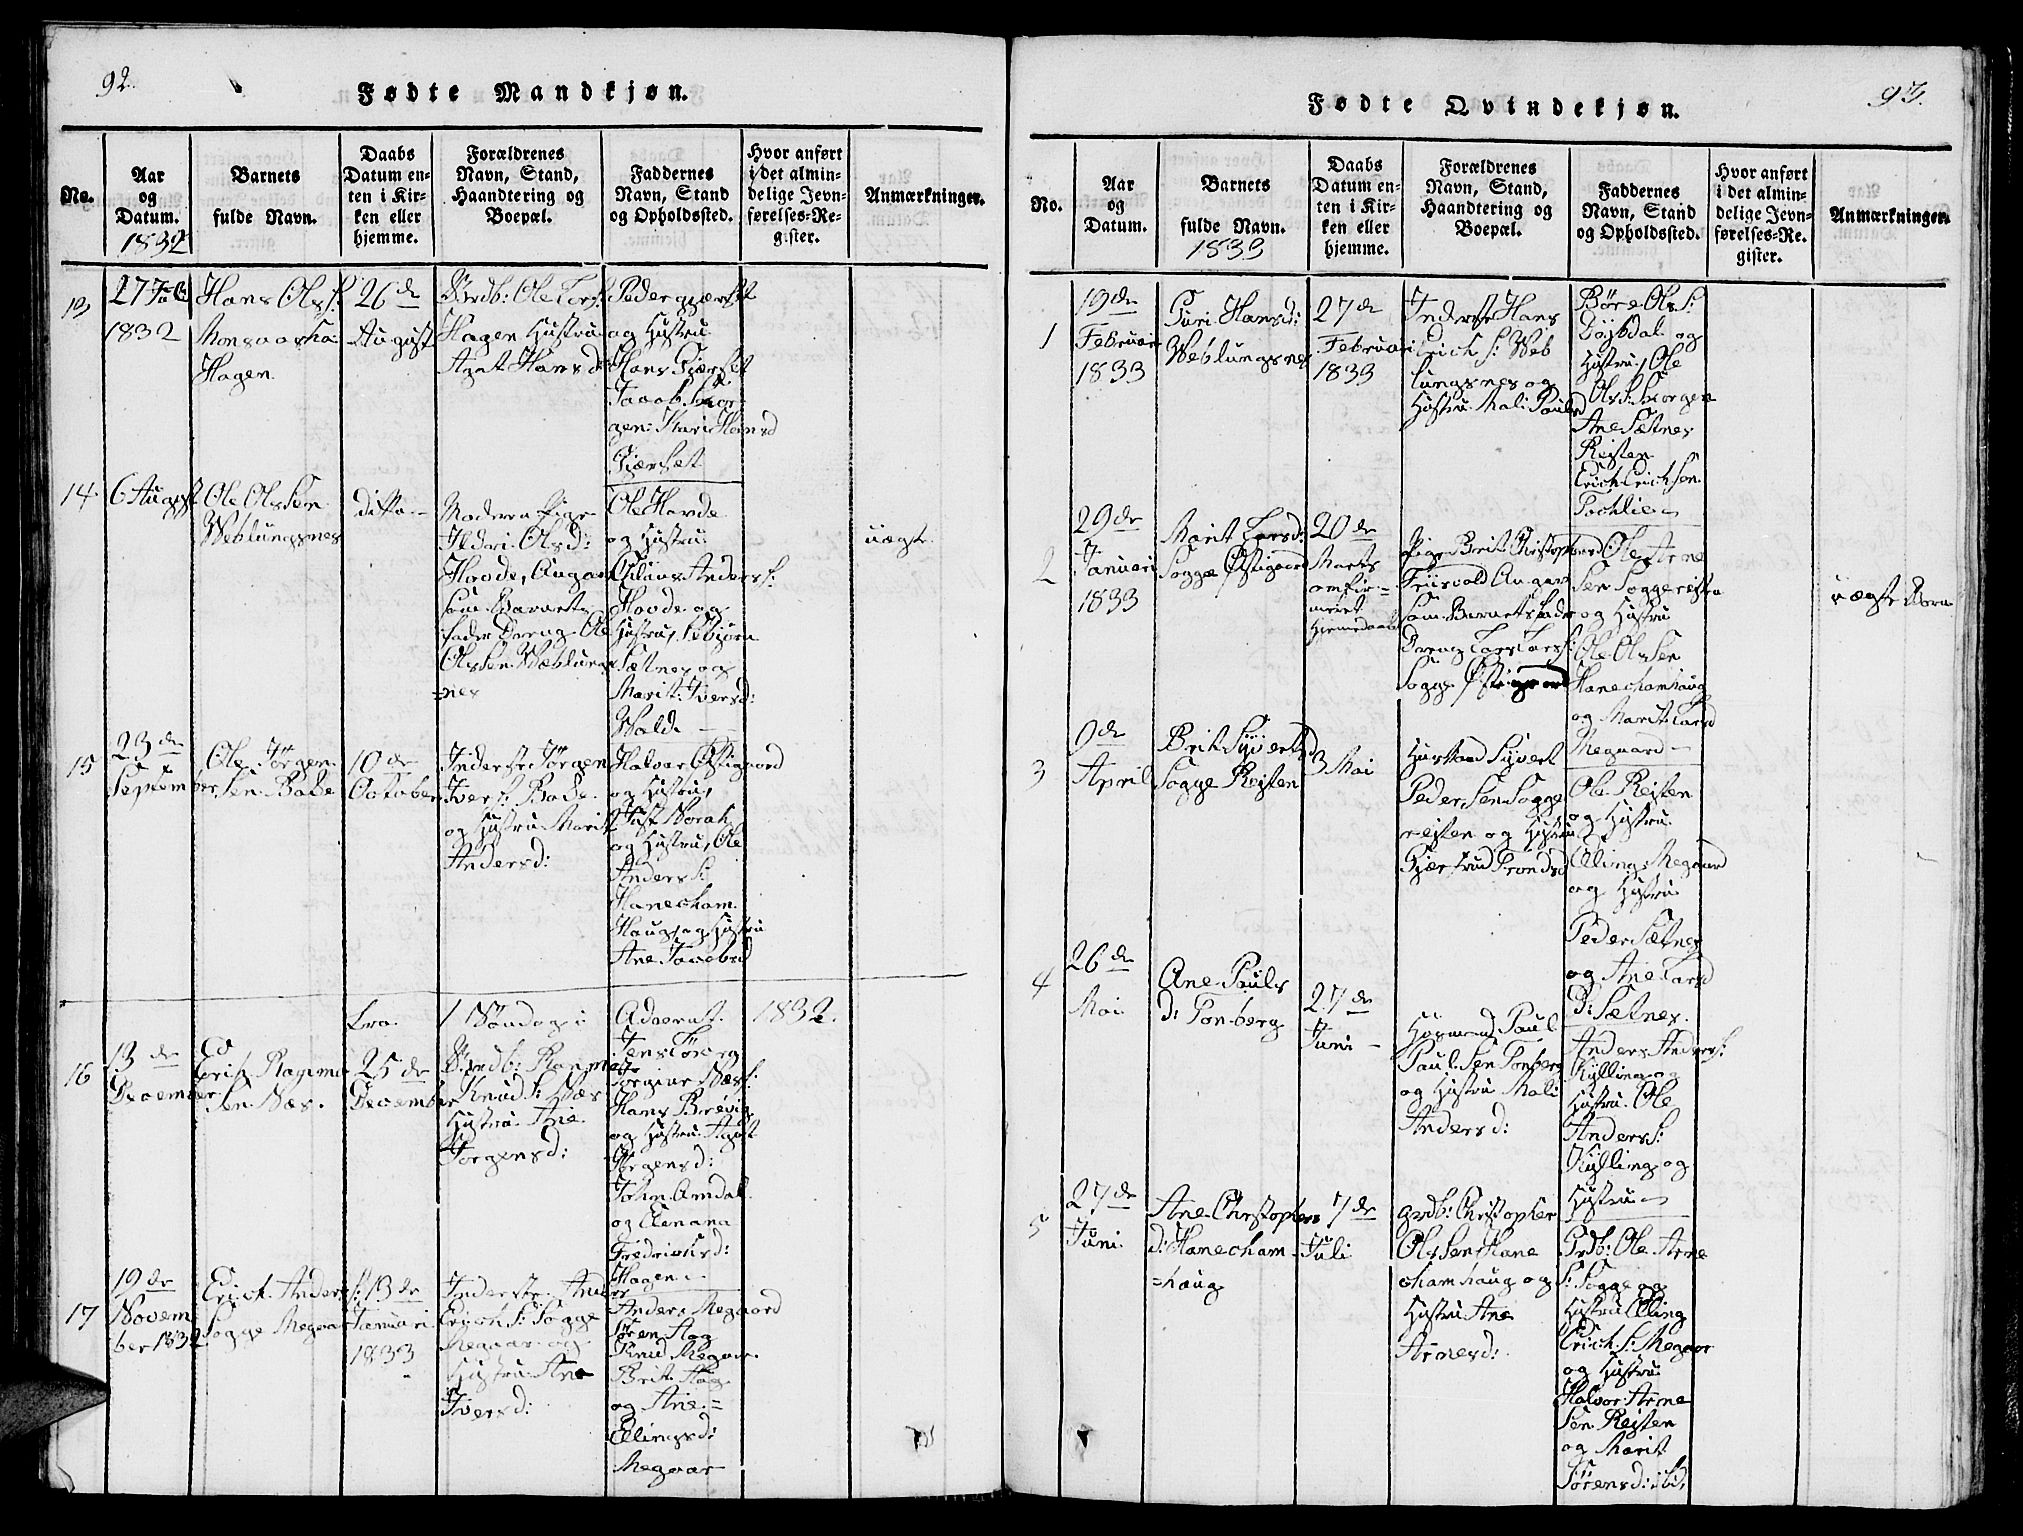 92.
Fødte Mandkjøn.
No.
Aar
og
Datum.
1832
Barnets
fulde Navn.
Daabs
Datum en-
ten i Kir-
ken eller
hjemme.
Forældrenes
Navn, Stand,
Haandtering og
Boepæl.
Faddernes
Navn, Stand
og Opholdssted.
Hvor anført
i det almin-
delige Jevn-
førelses-Re-
gister.
Anmærkninger.
13
27
1832
Hans Ols f:
Hagen
26 de
August
Grdb: Ole Lars f:
Hagen Hustru
Agat Hansd
Peder Gjærset
og Hustru
Hans Gjærset
Jacob Skor-
gen: Kari Hansd
Gjærset
14
6 August
Ole Olssen
Weblungsnes
ditto
Moderen Pige
Ildri Olsd:
Hovde, Angav
som Barnets
fader Dreng Ole
Olssen Weblungs
=nes
Ole Hovde
og Hustru
Anders f:
Hovde og
Hustru, Esbjørn
Sætnes og
Marit Iversd:
Wold
uægte
15
23 de
September
Ole Jørgen
sen Bade
10 de
October
Inderst Jørgen
Ivers f: Bade
og Hustru Marit
Andersd:
Halvor Østigaard
og Hustru,
Just Norah
og Hustru, Ole
Anders f:
Hanecham
Haug, og Hustru
Ane Jacobsd
Fra 1 Søndag i Advent 1832.
16
13 de
December
Erik
sen Næs.
25 de
December
Grdb:
Knud f: Næs
Hustru Ane
Jørgensd:
Jens
Hans Brevig
og Hustru Agat
Jørgensd:
John Amdal
og
Fredriksd:
Hagen
17
19 de
Novem
ber 1832
Erich Anders f:
Sogge Megaar
13 de
Januari
1833
Inderste Anders
Erich f: Sogge
Megaar og
Hustru Ane
Iversd:
Anders Megaard
Søren Aag
Knud Megaar
Brit Aag
og Ane =
Ellingsd:
Megaar
93.
Fødte Qvindekjøn.
No.
Aar
og
Datum.
Barnets
fulde Navn.
1833
Daabs
Datum en-
ten i Kir-
ken eller
hjemme.
Forældrenes
Navn, Stand,
Haandtering og
Boepæl.
Faddernes
Navn, Stand
og Opholdssted.
Hvor anført
i det almin-
delige Jevn-
førelses-Re-
gister.
Anmærkninger.
1
19 de
Februari
1833
Guri Hansd:
Weblungsnes
27 de
Februari
1833
Inderste Hans
Erich f: Web
lungsnes og
Hustru Mali Paulsd
Børe Ols f:
Dojbdal og
Hustru, Ole
Ols f: Skorgen
Ane Sætnes
Reisten
Erich Erichsen
Tochlie
2
29 de
Januari
1833
Marit Larsd:
Sogge Østigaard
20 de
Marts
omfir=
meret
Hjemedaabt
Pige Brit Christophersd
Friisvold Angav
Som Barnets Fader
Dreng Lars Lars f:
Sogge Østigaard
Ole Arne
Sen Sogge reisten
og Hustru
Ole Olssen
Hanechamhaug
og Marit Larsd
Megaard
uægte Born
3
9 de
April
Brit Syvertsd
Sogge Reisten
3 Mai
Husmand Syvert
Peder Sen Sogge
reisten og Hustru
Gjærtrud Trondsd
Ole Reisten
og Hustru
Elling Megaard
og Hustru
Peder Sætnes
og Ane Larsd
D: Sætnes.
4
26 de
Mai
Ane Pauls
d: Tonberg
27 de
Juni
Husmand Paul
Paul Sen Tonberg
og Hustru Mali
Andersd:
Anders Anders f:
Kylling og
Hustru. Ole
Anders f:
Kylling og
Hustru
5
27 de
Juni
Ane Christophers
d: Hanecham
=haug
7 de
Juli
Grdb: Christopher
Olssen Hane
chamhaug og
Hustru Ane
Arnesd:
Grdb: Ole Arne
f: Sogge og
Hustru Elling
Erich f: Megaar
og Hustru
Halvor Arne
Sen Reisten
og Marit
Sørensd: ibid.